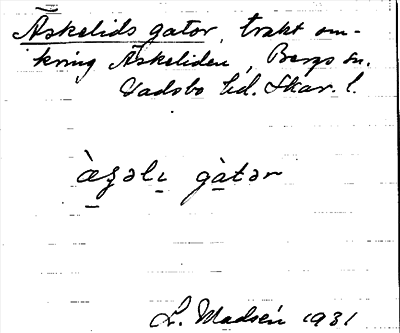 Äskelids gator, trakt om-
kring Äskeliden, Bergs sn.
Vadsbo hd. Skar. l.
àʂəlı gàtər
L. Madsén 1931